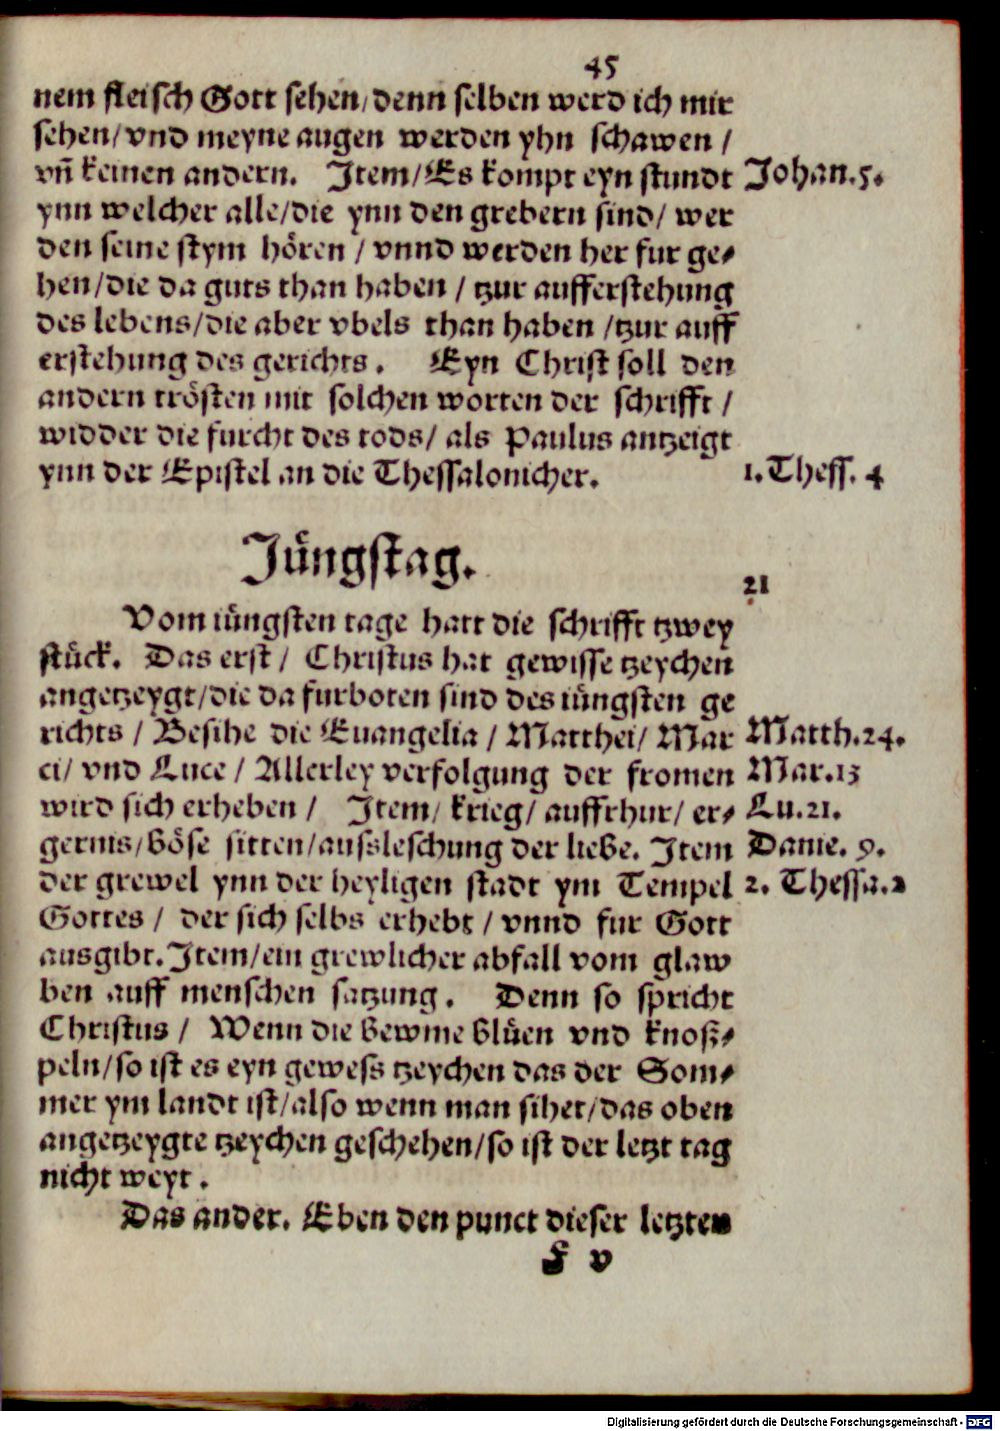 45
nem fleisch Gott sehen/denn selben werd ich mir
sehen/vnd meyne augen werden yhn schawen /
vñ keinen andern. Item/Es kompt eyn stundt Johan.5.
ynn welcher alle/die ynn den grebern sind/ wer
den seine stym hören / vnnd werden her fur ge⸗
hen/die da guts than haben / tzur aufferstehung
des lebens/die aber vbels than haben /tzur auff
erstehung des gerichts. Eyn Christ soll den
andern trösten mit solchen worten der schrifft /
widder die furcht des tods/ als Paulus antzeigt
ynn der Epistel an die Thessalonicher. 1.Thess. 4
Jüngstag.
21
Vom iüngsten tage hatt die schrifft tzwey
stück. Das erst/ Christus hat gewisse tzeychen
angetzeygt/die da furboten sind des iüngsten ge
richts / Besihe die Euangelia / Matthei/ Mar Matth.24.
ci/ vnd Luce / Allerley verfolgung der fromen Mar.13
wird sich erheben / Item/ krieg/ auffrhur/ er⸗ Lu.21.
gernis/böse sitten/aussleschung der liebe. Item Danie. 9.
der grewel ynn der heyligen stadt ym Tempel 2. Thessa.2
Gottes / der sich selbs erhebt / vnnd fur Gott
ausgibt.Item/ein grewlicher abfall vom glaw
ben auff menschen satzung. Denn so spricht
Christus / Wenn die bewme blüen vnd knoß⸗
peln/so ist es eyn gewess tzeychen das der Som⸗
mer ym landt ist/also wenn man sihet/das oben
angetzeygte tzeychen geschehen/so ist der letzt tag
nicht weyt.
Das ander. Eben den punct dieser letzten
F v
Digitalisierung gefördert durch die Deutsche Forschungsgemeinschaft - DFG